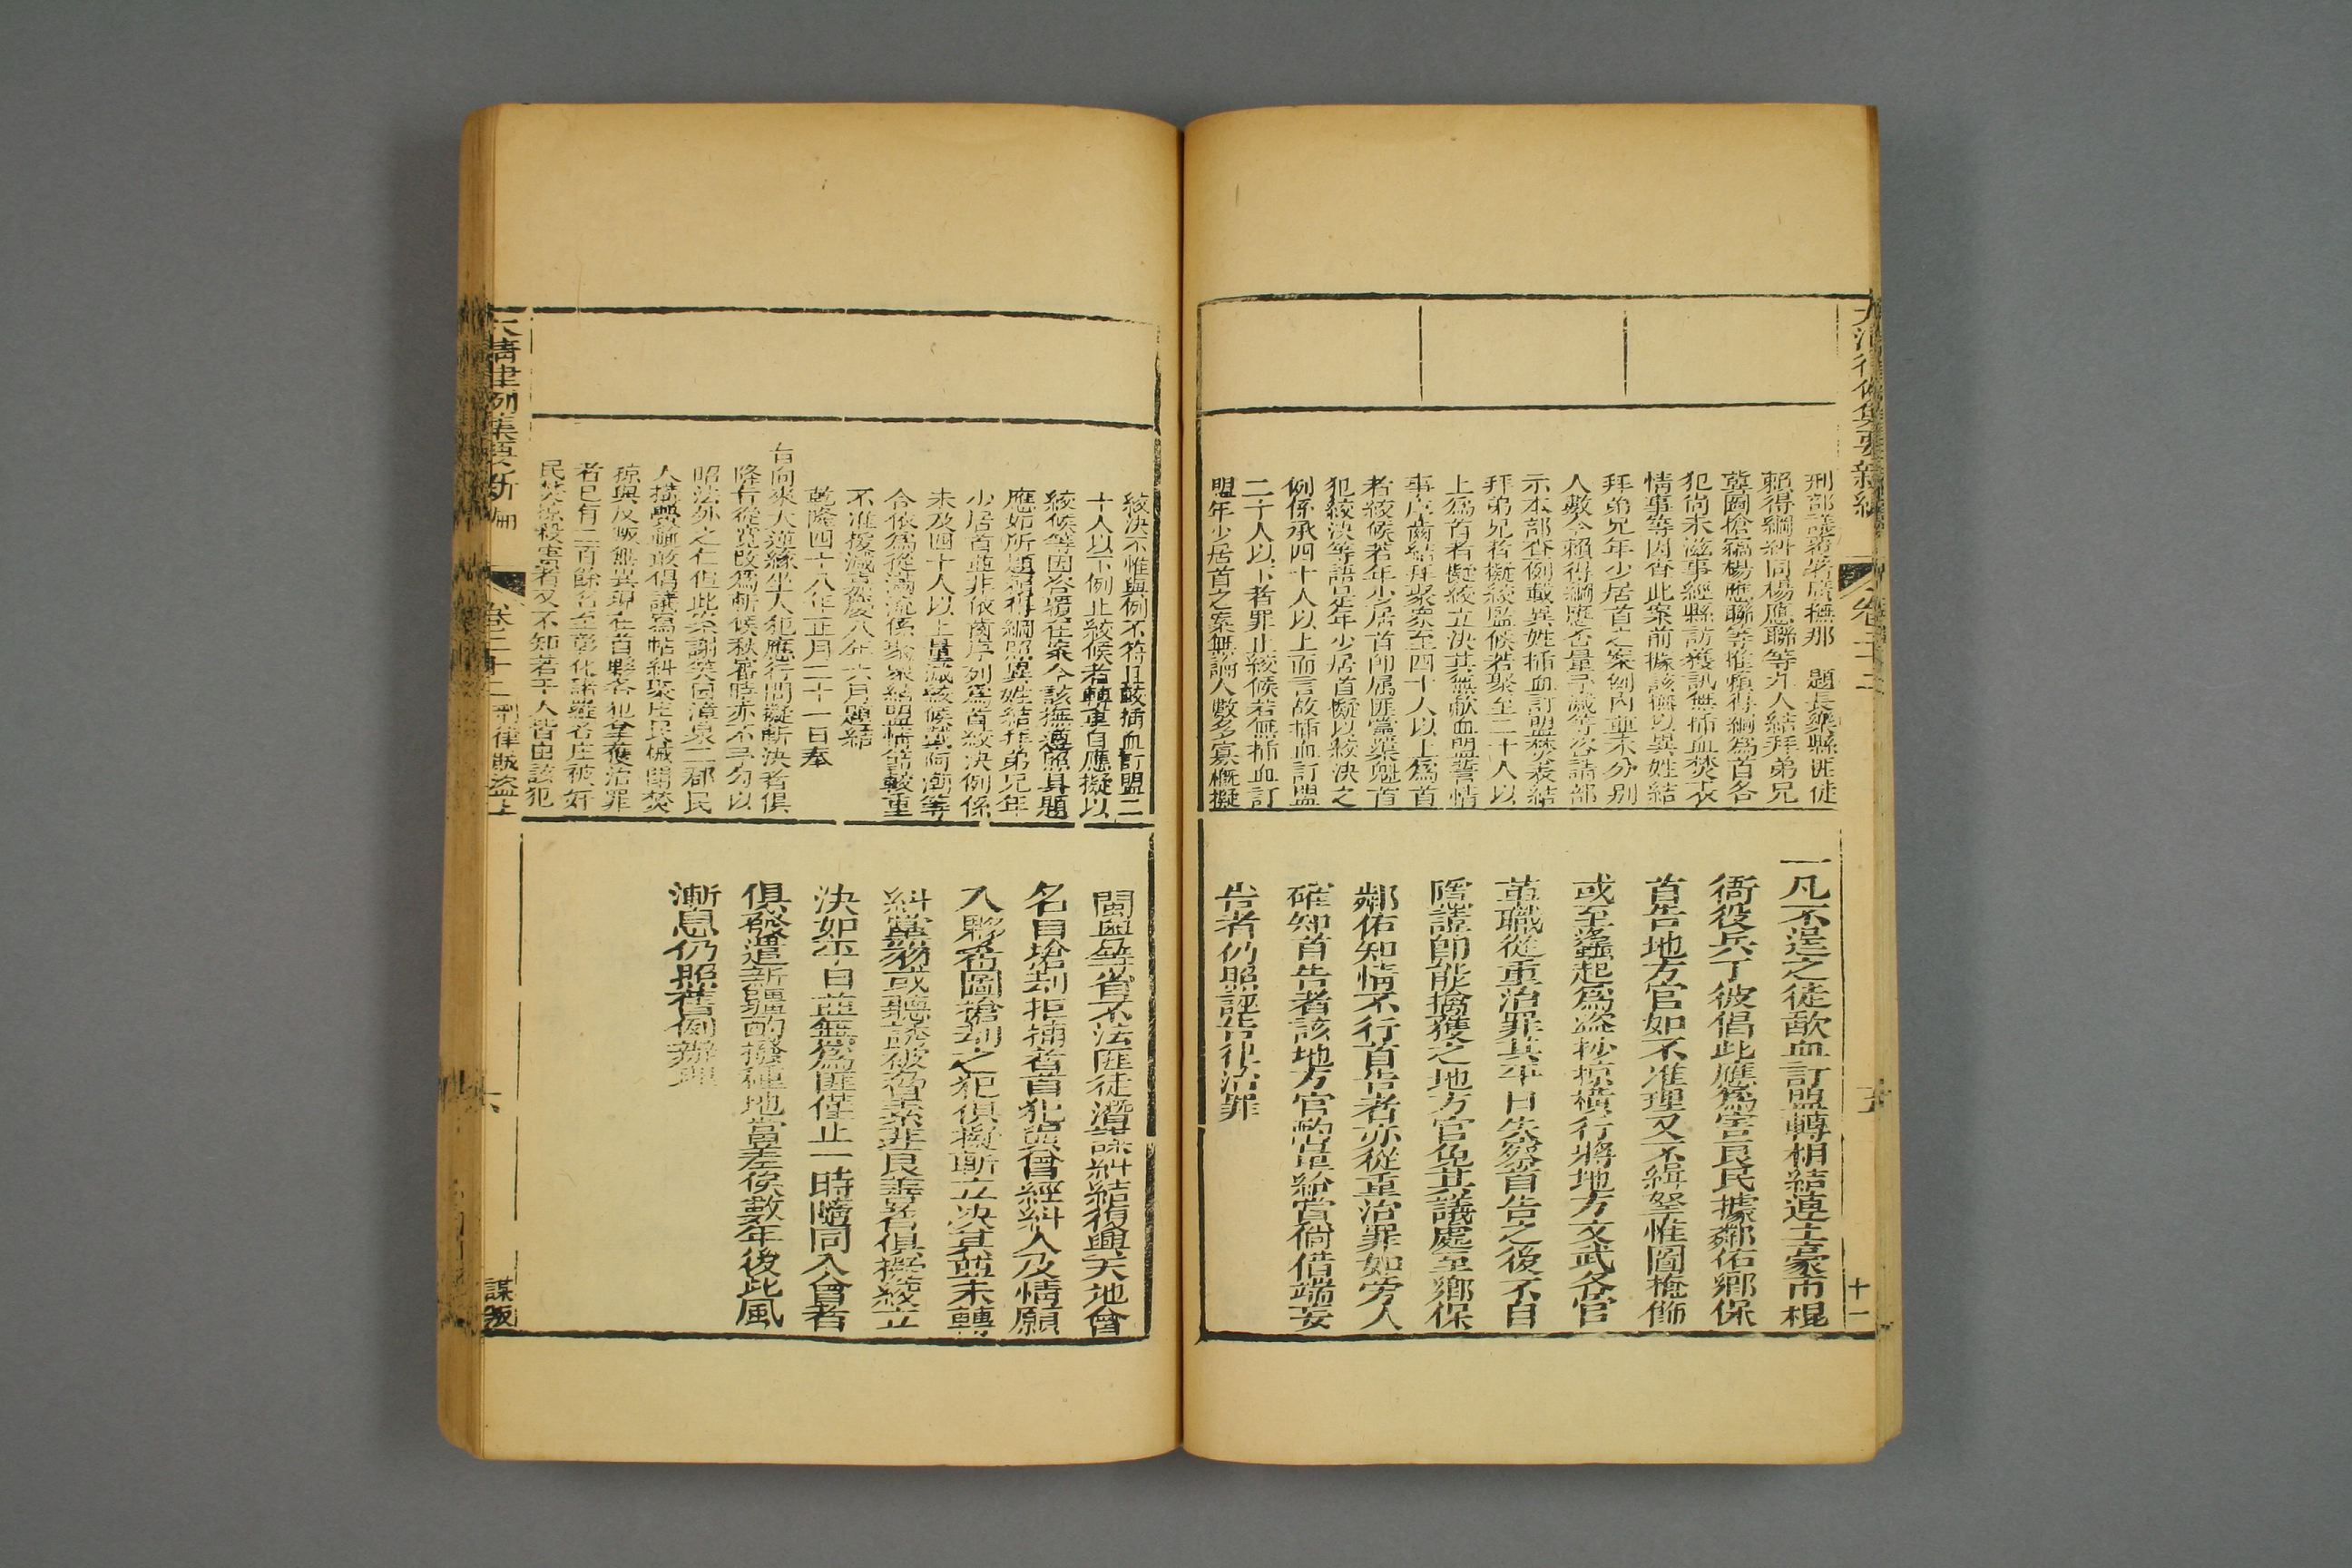 大清律例集要新編
卷二十二
十一
刑部議覆署廣撫那 題長樂縣匪徒
賴得綱糾同楊應聯等九人結拜弟兄
冀圖搶竊楊應聯等推賴得綱為首各
犯尚未滋事經縣訪獲訊無插血焚表
情事等因查此案前據該撫以異姓結
拜弟兄年少居首之案例內並未分別
人數今賴得綱應否量予減等咨請部
示本部查例載異姓插血訂盟焚表結
拜弟兄者擬絞監候若聚至二十人以
上為首者擬絞立決其無歃血盟誓情
事序齒結拜聚眾至四十人以上為首
者絞候若年少居首即屬匪黨渠魁首
犯絞決等語是年少居首擬以絞決之
例係承四十人以上而言故插血訂盟
二十人以下者罪止絞候若無插血訂
盟年少居首之案無論人數多寡概擬
一凡不逞之徒歃血訂盟轉相結連土豪市棍
衙役兵丁彼倡此應為害良民據鄰佑鄉保
首告地方官如不准理又不緝拏惟圖掩飾
或至蠭起為盜抄掠橫行將地方文武各官
革職從重治罪其平日失察首告之後不自
隱諱即能擒獲之地方官免其議處至鄉保
鄰佑知情不行首告者亦從重治罪如旁人
確知首告者該地方官酌量給賞倘借端妄
告者仍照誣告律治罪
絞決不惟與例不符且較插血訂盟二
十人以下例止絞候者轉重自應擬以
絞候等因咨覆在案今該撫遵照具題
應如所題賴得綱照異姓結拜弟兄年
少居首並非依齒序列為首絞決例係
未及四十人以上量減絞候黃阿潮等
合依為從滿流係聚眾結盟情節較重
不准援減嘉慶八年六月題結
乾隆四十八年正月二十一日奉
旨向來大逆緣坐人犯應行問擬斬決者俱
降旨從寬改為斬候秋審時亦不予勾以
昭法外之仁但此案謝笑因漳泉二郡民
人搆釁輒敢倡議寫帖糾眾庄民械鬪焚
掠與反叛無異現在首夥各犯拿獲治罪
者已有二百餘名至彰化諸羅各庄被奸
民焚掠殺害者又不知若干人皆由該犯
閩粵等省不法匪徒潛謀糾結復興天地會
名目搶刼拒捕者首犯與曾經糾人及情願
入夥希圖搶刼之犯俱擬斬立決其並未轉
糾黨羽或聽誘被脅素非良善者俱擬絞立
決如平日並無為匪僅止一時隨同入會者
俱發遣新疆酌撥種地當差俟數年後此風
漸息仍照舊例辦理
大清律例集要新編
卷二十二 刑律賊盜上
謀叛